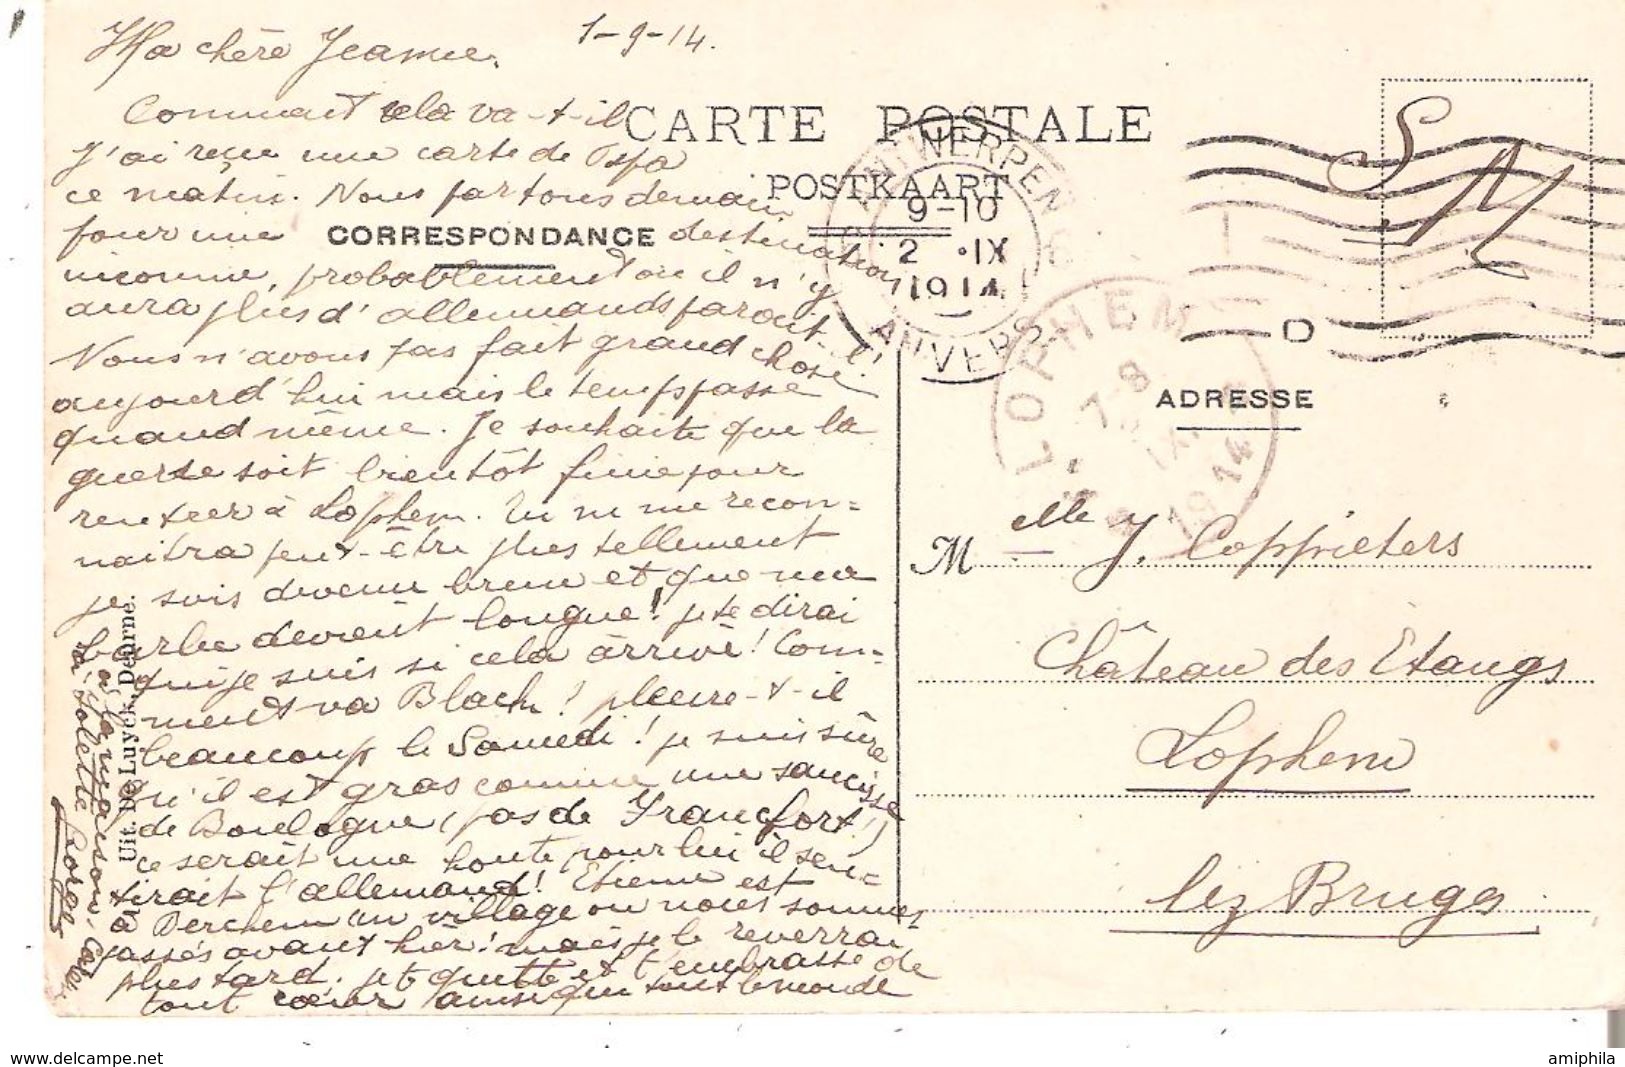 1-9-14.
Ma chère Jeanne,
Comment cela va-t-il
J'ai reçu une carte de Spa
ce matin. Nous partons demain
pour une destination
inconnue, probablement ou il n'y
aura plus d'allemands parait-il!
Nous n'avons pas fait grand chose
aujourd'hui mais le temps passe
quand même. Je souhaite que la
guerre soit bientôt finie pour
rentrer à Lophem. Tu ne me recon=
naitra peut-être plus tellement
je suis devenu brun et que ma
barbe devient longue! je te dirai
qui je suis si cela arrive! Com=
ment va Black! pleure-t-il
beaucoup le Samedi! je suis sûre
qu'il est gras comme une saucisse
de Boulogne (pas de Francfort!)
ce serait une honte pour lui il sen=
tirait l'allemand! Etienne est
à Berchem un village ou nous sommes
passés avant hier! mais je le reverrai
plus tard. je te quitte et t'embrasse de
tout cœur ainsi que tout le monde
à la maison,
CARTE POSTALE
POSTKAART
CORRESPONDANCE
ADRESSE
SM
ANTWERPEN
9-10
2 .IX
1914
ANVERS
D
LOPHEM
7-8
IX.
1914
M elle J. Coppieters
Château des Etangs
Lophem
lez Bruges
Uit. De Luyck, Deurne.
www.delcampe.net
amiphila